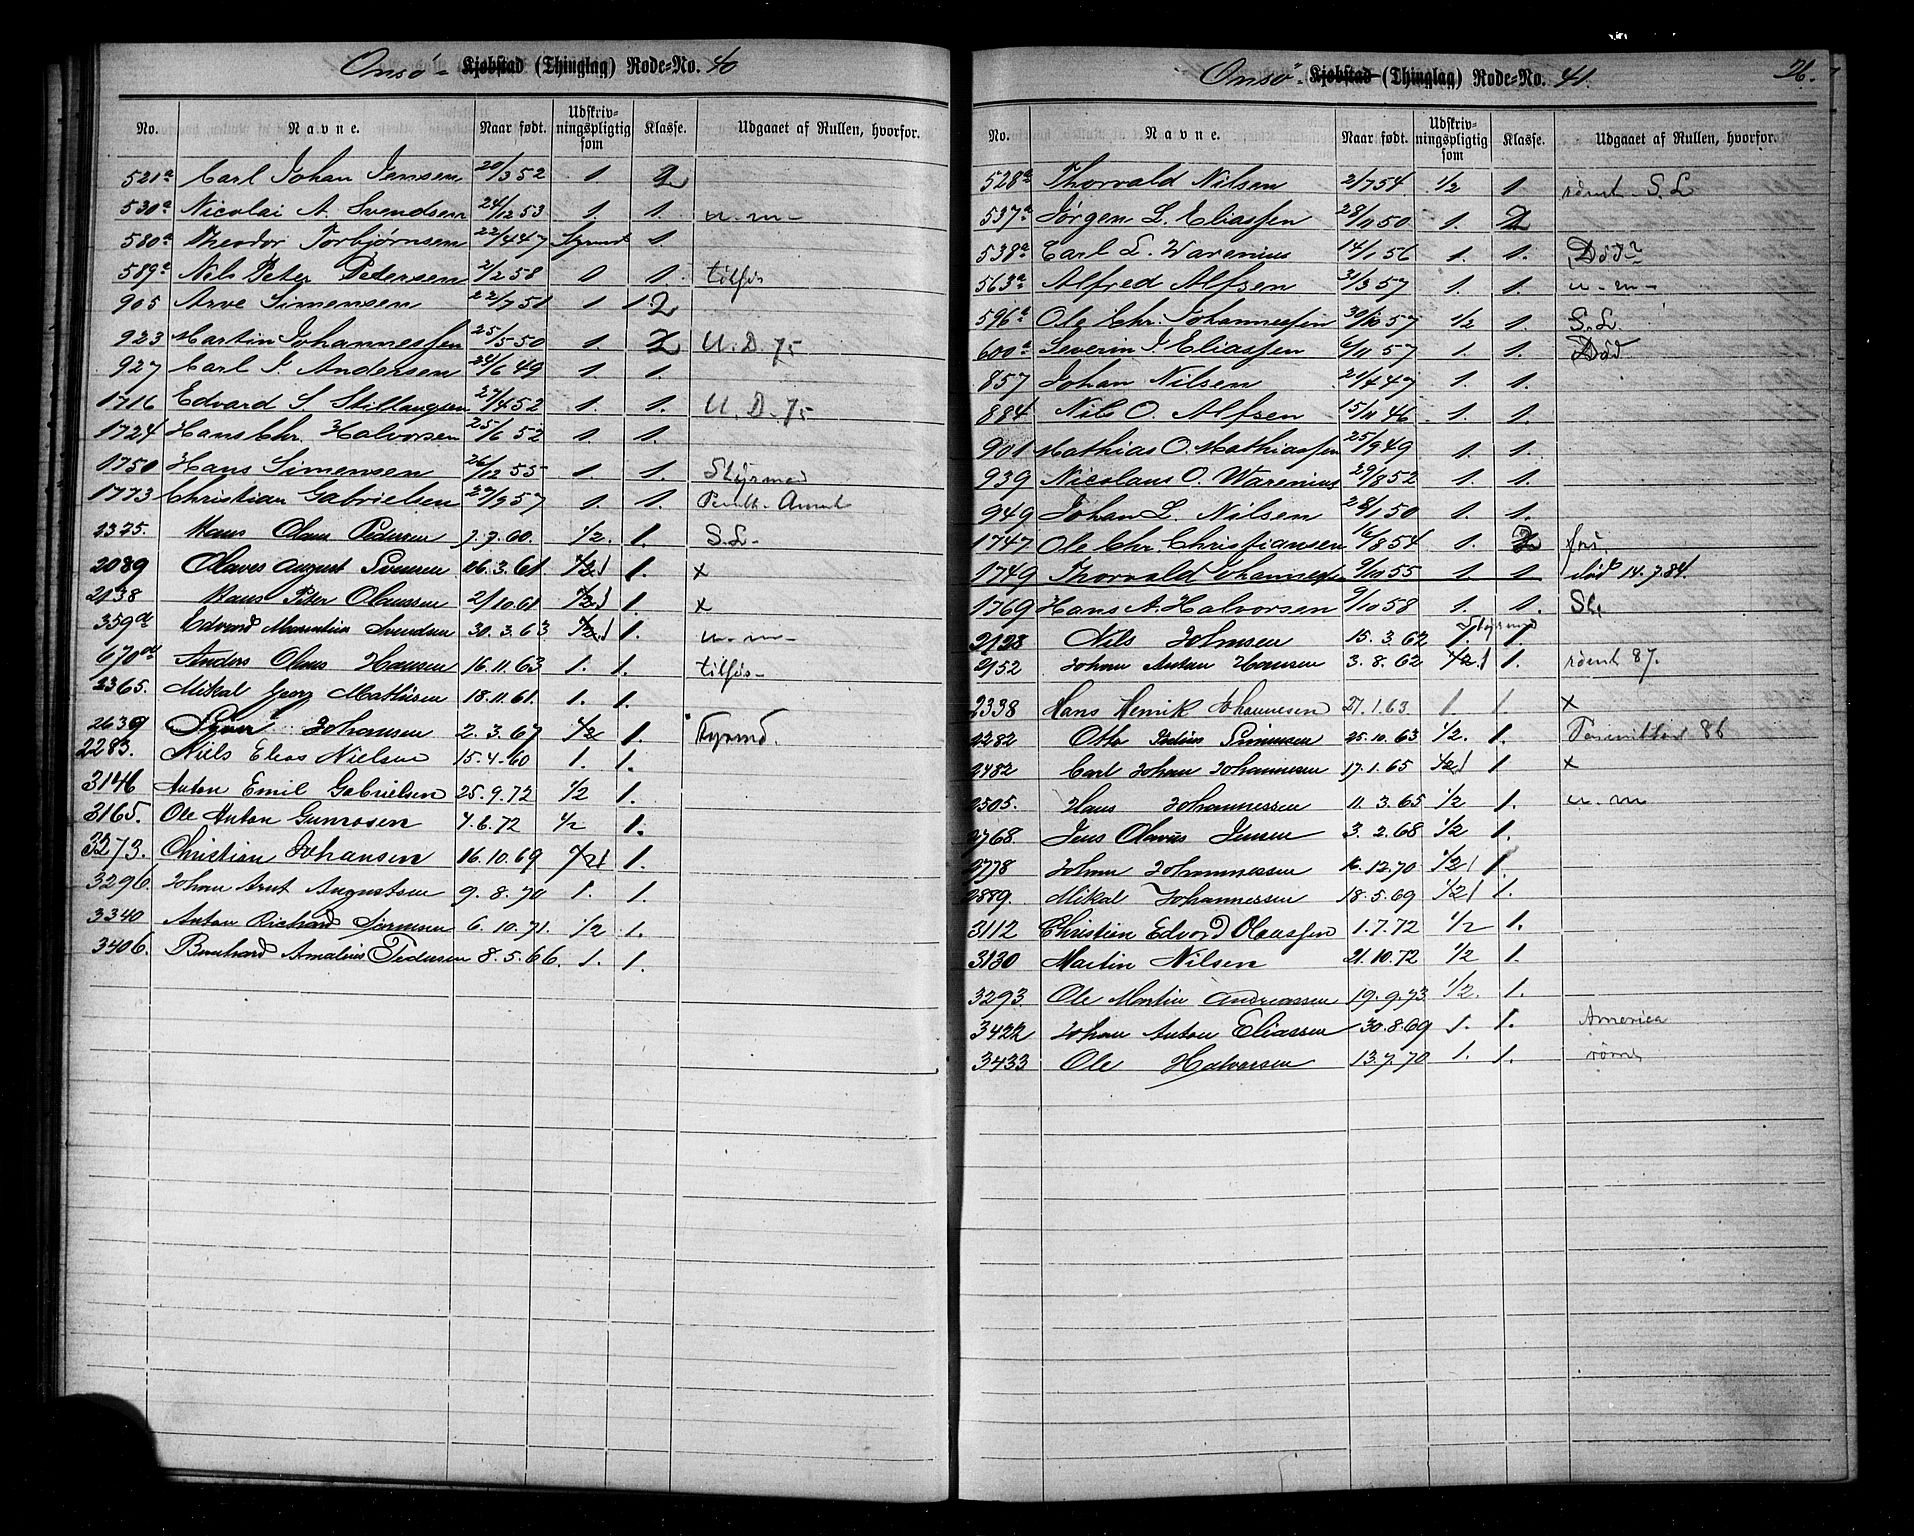 Onsö- Kjøbstad (Thinglag) Rode-No. 40
No. Navne. Naar født. Udskrivningspligtig som Klasse. Udgaaet af Rullen, hvorfor.
521a Carl Johan Jensen 20/3 52 1 2
530a Nicolai A. Svendsen 24/12 53 1. 1. u.m-
580a Theodor Torbjørnsen 22/4 47 Styrmd 1.
589a Nils Peter Pedersen 2/2 58 1 1. tilfös
905 Arve Simensen 22/7 51 1 1 2
923 Martin Johannessen 25/5 50 1. 2 U.D. 75
927 Carl J. Andersen 24/6 49 1. 1.
1716 Edvard S Stillaugsen 27/4 52 1. 1. U.D. 75
1724 Hans Chr. Halvorsen 25/6 52 1. 1.
1750 Hans Simensen 26/12 55 1. 1. Styrmd
1773 Christian Gabrielsen 27/9 57 1. 1.
2375. Hans Olaus Pedersen 7.9.60. 1/2. 1. S.L-
2089 Olaves August Svensen 06.3.61 1/2 1 1. x
2138 Hans Peter Olaussen 2/10.61 1/2 1 1. x
359ad Edvard Marentius Svendsen 30.3.63 1/2 1 1. u.m-
670ad Anders Olaus Hansen 16.11.63 1. 1. tilfös-
2365. Mikal Georg Mathisen 18.11.61. 1. 1.
2639 Syver Johansen 2.3.67 1/2 1. Styrmd.
2283. Niels Elias Nielsen 15.4.60 1. 1.
3146 Anton Emil Gabrielsen 25.9.72 1/2 1.
3165. Ole Anton Gunrosen 4.6.72 1/2 1.
3273. Christian Johansen 16.10.69 1/2 1 1.
3296. Johan Arnt Augustsen 9.8.70 1. 1.
3340 Anton Richard Sörensen 6.10.71. 1/2 1.
3406. Bernhard Amalius Pedersen 8.5.66. 1. 1.
26.
Onsö- Kjøbstad (Thinglag) Rode-No. 41.
No. Navne. Naar født. Udskrivningspligtig som Klasse. Udgaaet af Rullen, hvorfor.
528a Thorvald Nilsen 2/7 54 1/2 1. römt S.L
537a Jörgen L. Eliassen 28/11 50 1. 2
539a Carl L. Warenius 14/1 56 1. 1. Död
563a Alfred Alfsen 31/3 57 1. 1. u-m-
596a Ole Chr. Johannessen 30/10 57 1/2 1. S.L
600a Severin J. Eliassen 6/11 57 1. 1. Död
857 Johan Nilsen 21/4 47 1. 1.
884 Nils O. Alfsen 15/11 46 1. 1.
901 Mathias O. Mathiassen 25/9 49 1. 1.
939 Nicolaus O. Warenius 29/8 52 1. 1.
949 Johan L. Nilsen 28/1 50 1. 1.
1747 Ole Chr. Christiansen 16/8 54 1. 2
1749 Thorvald Johannessen 9/10 55 1. 1 död 14.7.84.
1769 Hans A. Halvorsen 9/10 58 1. 1. SL
2128 Nils Johnsen 15.3.62 Styrmd 1. 1
2152 Johan Anton Hansen 3.8.62 1/2 1 1. römt 87.
2338 Hans Henrik Johannesen 27.1.63 1 1 x
2282 Otto Simensen 25.10.63 1/2. 1. 86
2482 Carl Johan Johannesen 17.1.65 1/2 1 1 x
2505. Hans Johannessen 11.3.65 1/2 1. u.m
2768 Jens Olavus Jensen 3.2.68 1/2 1.
2778 Johan Johannessen 16.12.70 1/2 1 1.
2889. Mikal Johannessen 18.5.69 1/2 1 1.
3112 Christian Edvard Olaussen 1.7.72 1/2 1.
3130 Martin Nilsen 21.10.72 1/2 1.
3293 Ole Martin Andreassen 19.9.73 1/2. 1.
3422 Johan Anton Eliassen 30.8.69 1. 1. America
3433 Ole Halvorsen 13.7.70 1. 1. römt